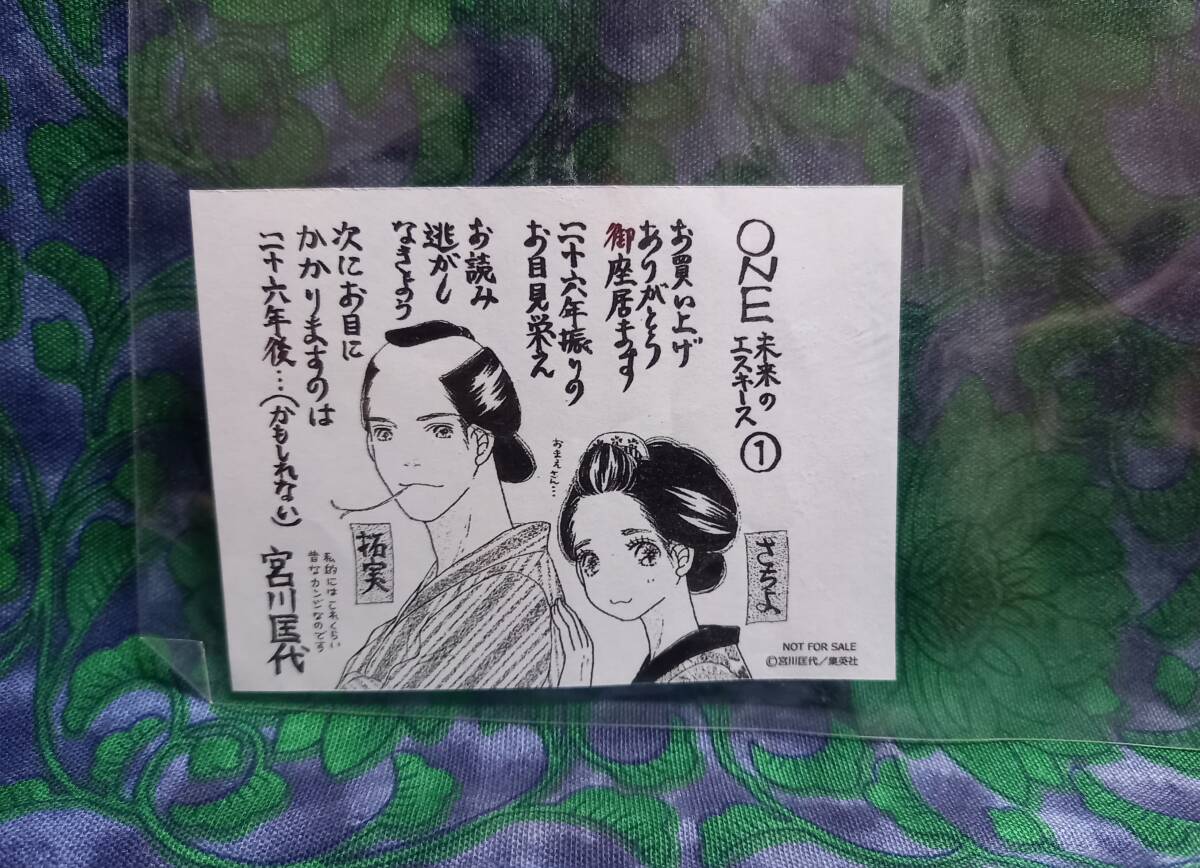 ONE
未来の
エスキース
①
お買い上げ
ありがとう
御座居ます
二十六年振りの
お目見栄え
お読み
逃がし
なきよう
次にお目に
かかりますのは
二十六年後…(かもしれない)
宮川匡代
私的にはこれくらい
昔なカンジなのです
拓実
おまえさん…
さちよ
NOT FOR SALE
©宮川匡代/集英社